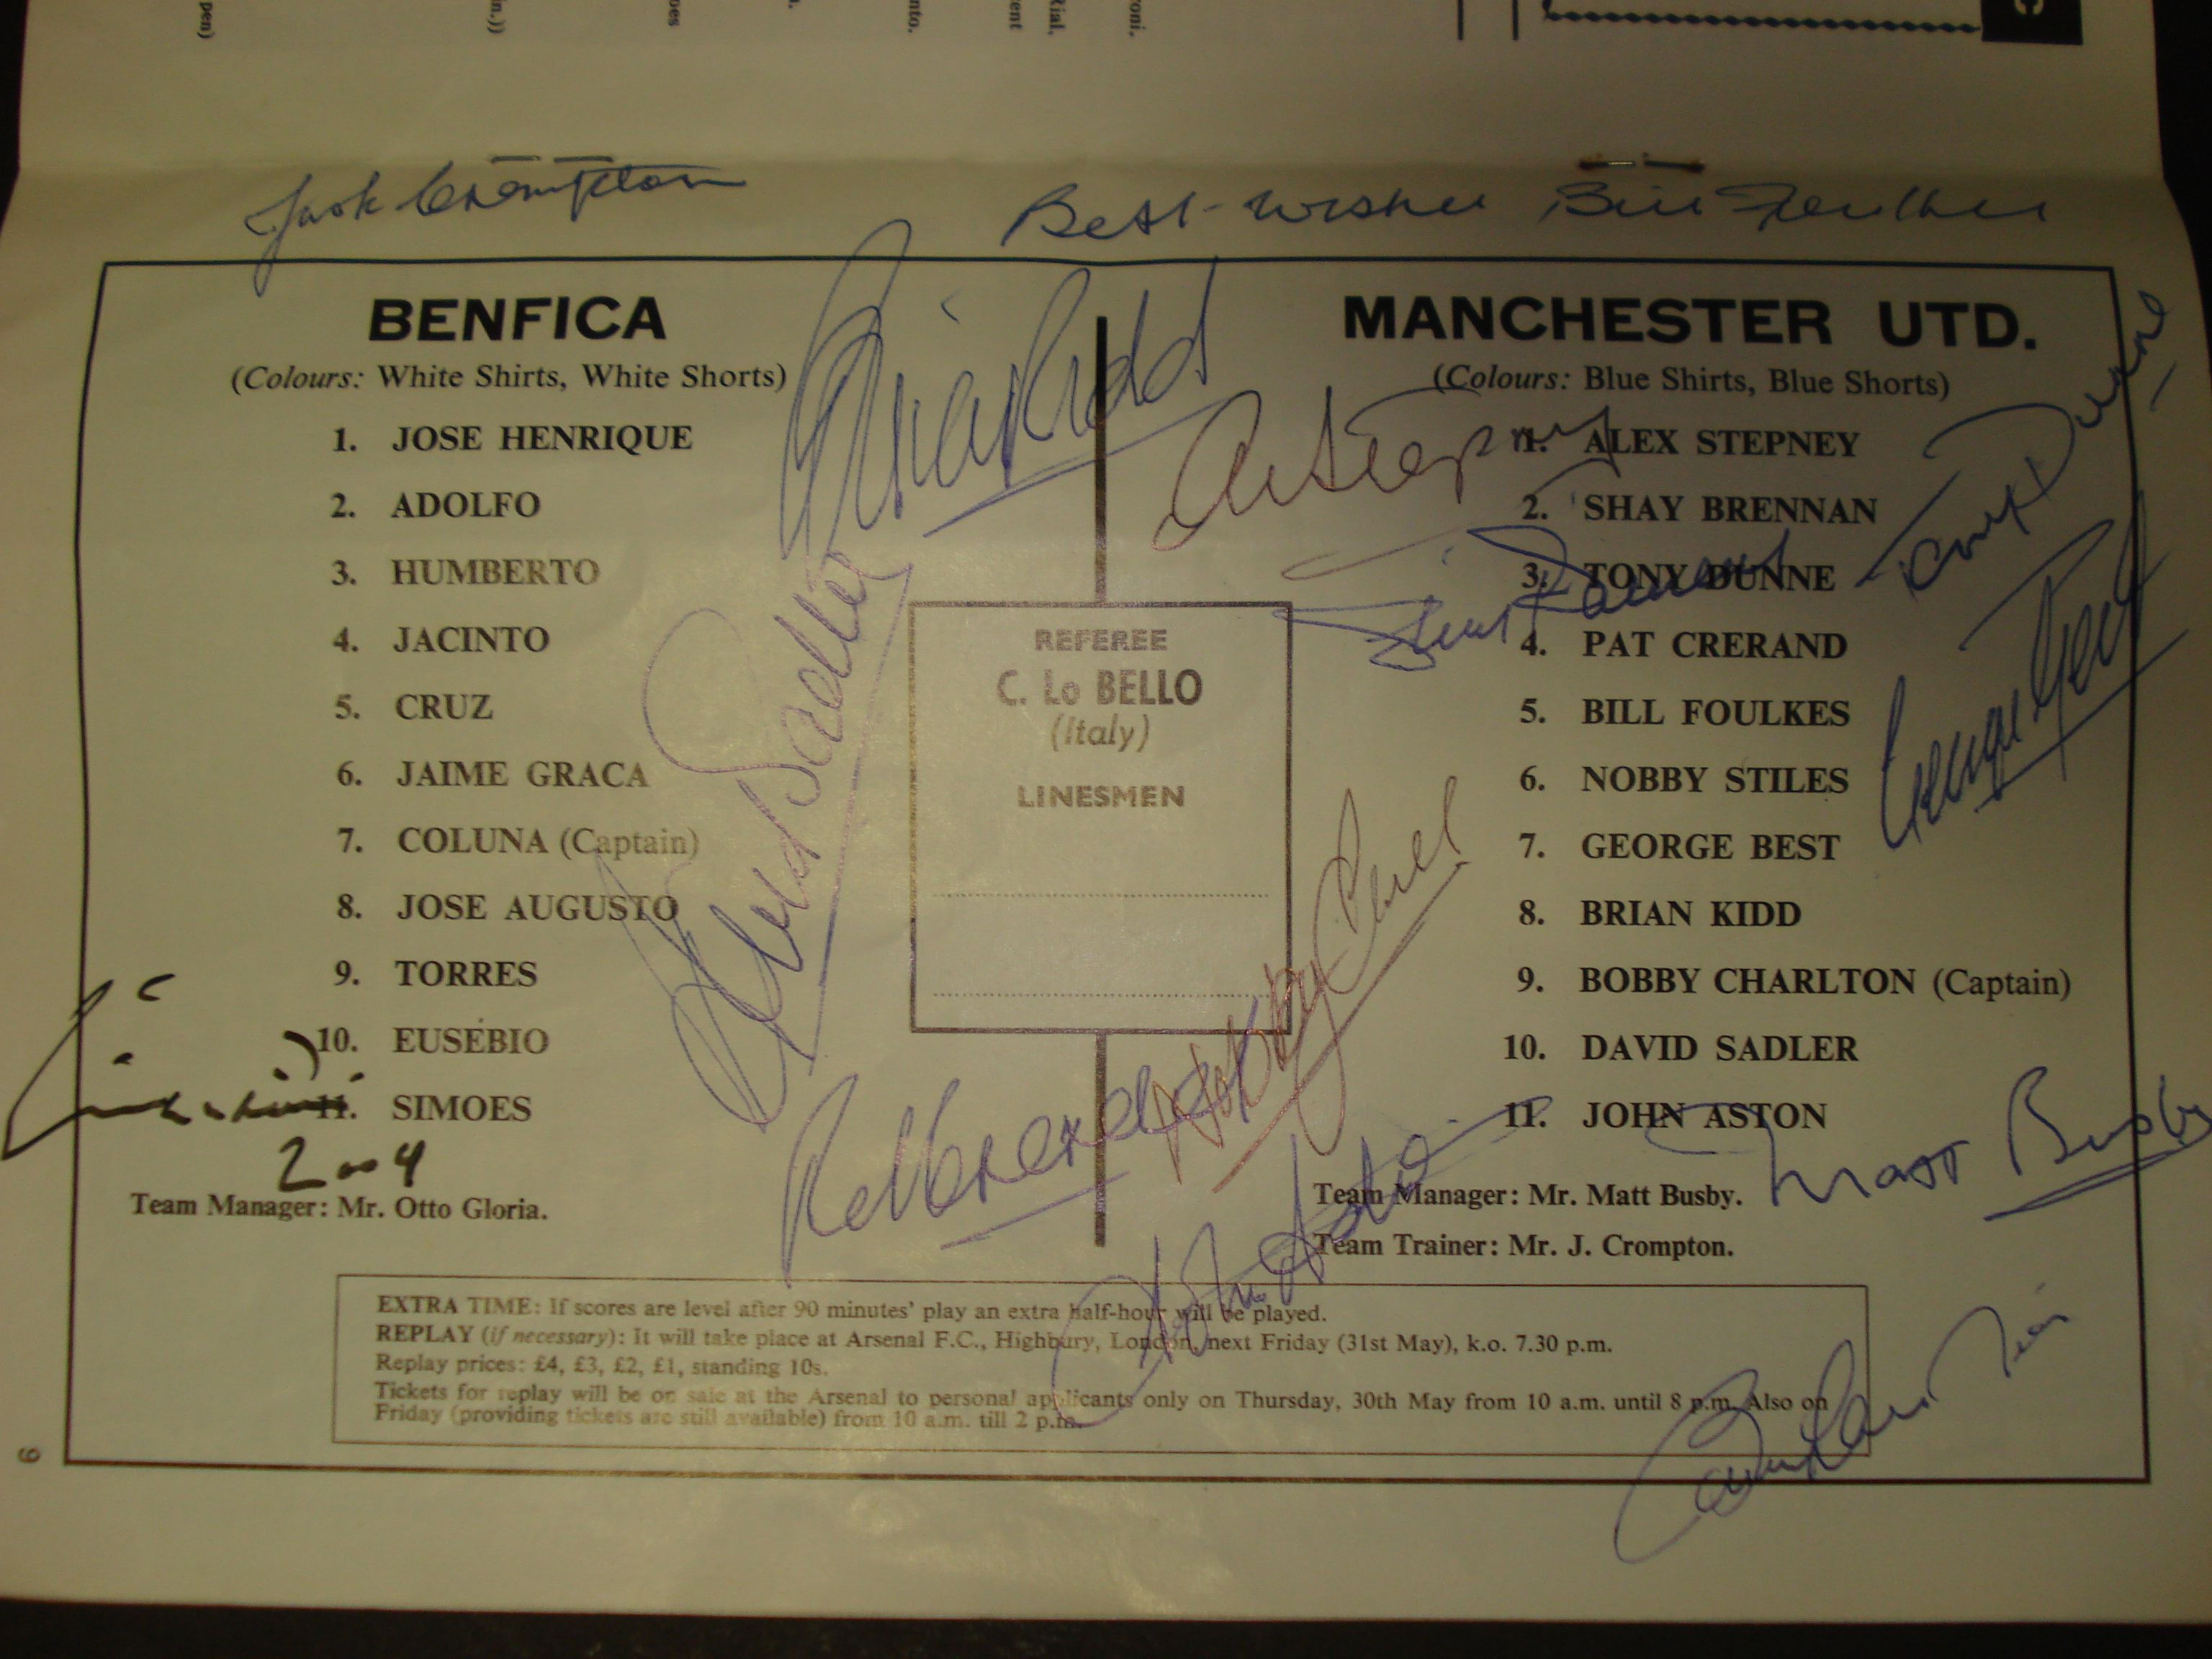 Jack Crompton
Best wishes Bill Foulkes
BENFICA
(Colours: White Shirts, White Shorts)
1. JOSE HENRIQUE
2. ADOLFO
3. HUMBERTO
4. JACINTO
5. CRUZ
6. JAIME GRACA
7. COLUNA (Captain)
8. JOSE AUGUSTO
9. TORRES
10. EUSÉBIO
11. SIMOES
2004
Team Manager: Mr. Otto Gloria.
Brian Kidd
David Sadler
REFEREE
C. Lo BELLO
(Italy)
LINESMEN
Nobby Stiles
MANCHESTER UTD.
(Colours: Blue Shirts, Blue Shorts)
1. ALEX STEPNEY
2. SHAY BRENNAN
3. TONY DUNNE
4. PAT CRERAND
5. BILL FOULKES
6. NOBBY STILES
7. GEORGE BEST
8. BRIAN KIDD
9. BOBBY CHARLTON (Captain)
10. DAVID SADLER
11. JOHN ASTON
Team Manager: Mr. Matt Busby.
Team Trainer: Mr. J. Crompton.
A Stepney
Tony Dunne
George Best
Matt Busby
EXTRA TIME: If scores are level after 90 minutes' play an extra half-hour will be played.
REPLAY (if necessary): It will take place at Arsenal F.C., Highbury, London, next Friday (31st May), k.o. 7.30 p.m.
Replay prices: £4, £3, £2, £1, standing 10s.
Tickets for replay will be on sale at the Arsenal to personal applicants only on Thursday, 30th May from 10 a.m. until 8 p.m. Also on
Friday (providing tickets are still available) from 10 a.m. till 2 p.m.
9